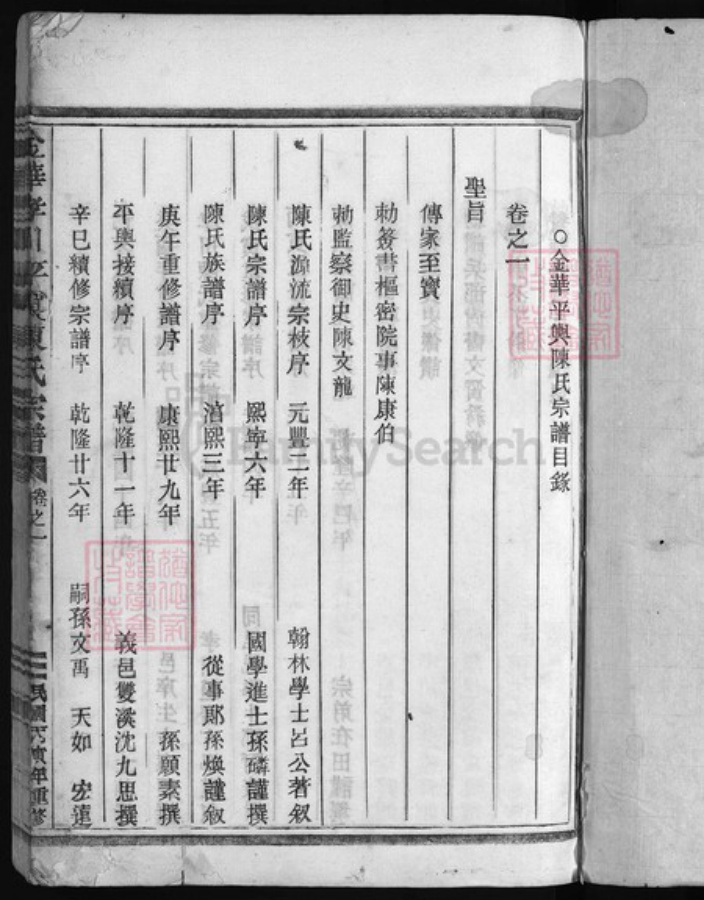 ○金華平輿陳氏宗譜目錄
卷之一
聖旨
傳家至寶
勅簽書樞密院事陳康伯
勅監察御史陳文龍
陳氏源流宗枝序 元豐二年 翰林學士呂公著叙
陳氏宗譜序 熙寧六年 國學進士孫磷謹撰
陳氏族譜序 淳熙三年 從事郎孫煥謹叙
庚午重修譜序 康熙廿九年 孫願素撰
平輿接續序 乾隆十一年 義邑雙溪沈九思撰
辛巳續修宗譜序 乾隆廿六年 嗣孫文禹 天如 宏遠
陳氏宗譜 卷之一 民國 寅年重修
FamilySearch